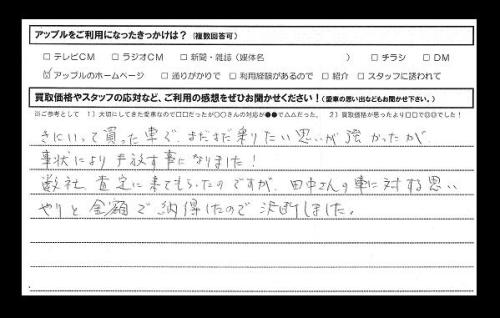 アップルをご利用になったきっかけは？（複数回答可）
□ テレビCM　□ ラジオCM　□ 新聞・雑誌（媒体名　　　　　　　　）　□ チラシ　□ DM
☑ アップルのホームページ　□ 通りがかりで　□ 利用経験があるので　□ 紹介　□ スタッフに誘われて
買取価格やスタッフの応対など、ご利用の感想をぜひお聞かせください！（愛車の思い出などもお聞かせ下さい。）
※ご参考として　1）大切にしてきた愛車なので□□だったが○○さんの対応が●●で△△だった。　2）買取価格が思ったより□□で◎◎でした！
きにいって買った車で、まだまだ乗りたい思いが強かったが
事状により手放す事になりました！
数社、査定に来てもらったのですが、田中さんの車に対する思い
やりと金額で納得したので決断しました。